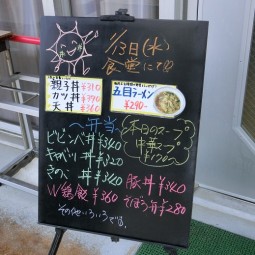 1/13日(水)
食堂にて
親子丼 ¥310
カツ丼 ¥390
天丼 ¥360
五目ラーメン
¥290-
弁当
ビビンバ丼 ¥340
キャベツ丼 ¥320
きのこ丼 ¥340
W鶏飯 ¥360
本日のスープ
中華スープ
豚丼 ¥340
そぼろ丼 ¥280
その他いろいろです。